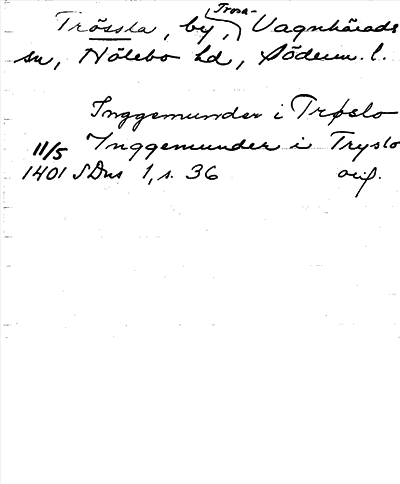 Trössla, by, Trosa-Vagnhärads
sn, Hölebo hd, Söderm. l.
Inggemunder i Trøslo
11/5 Ynggemunder i Tryslo
1401 SDns 1, s. 36 orig.